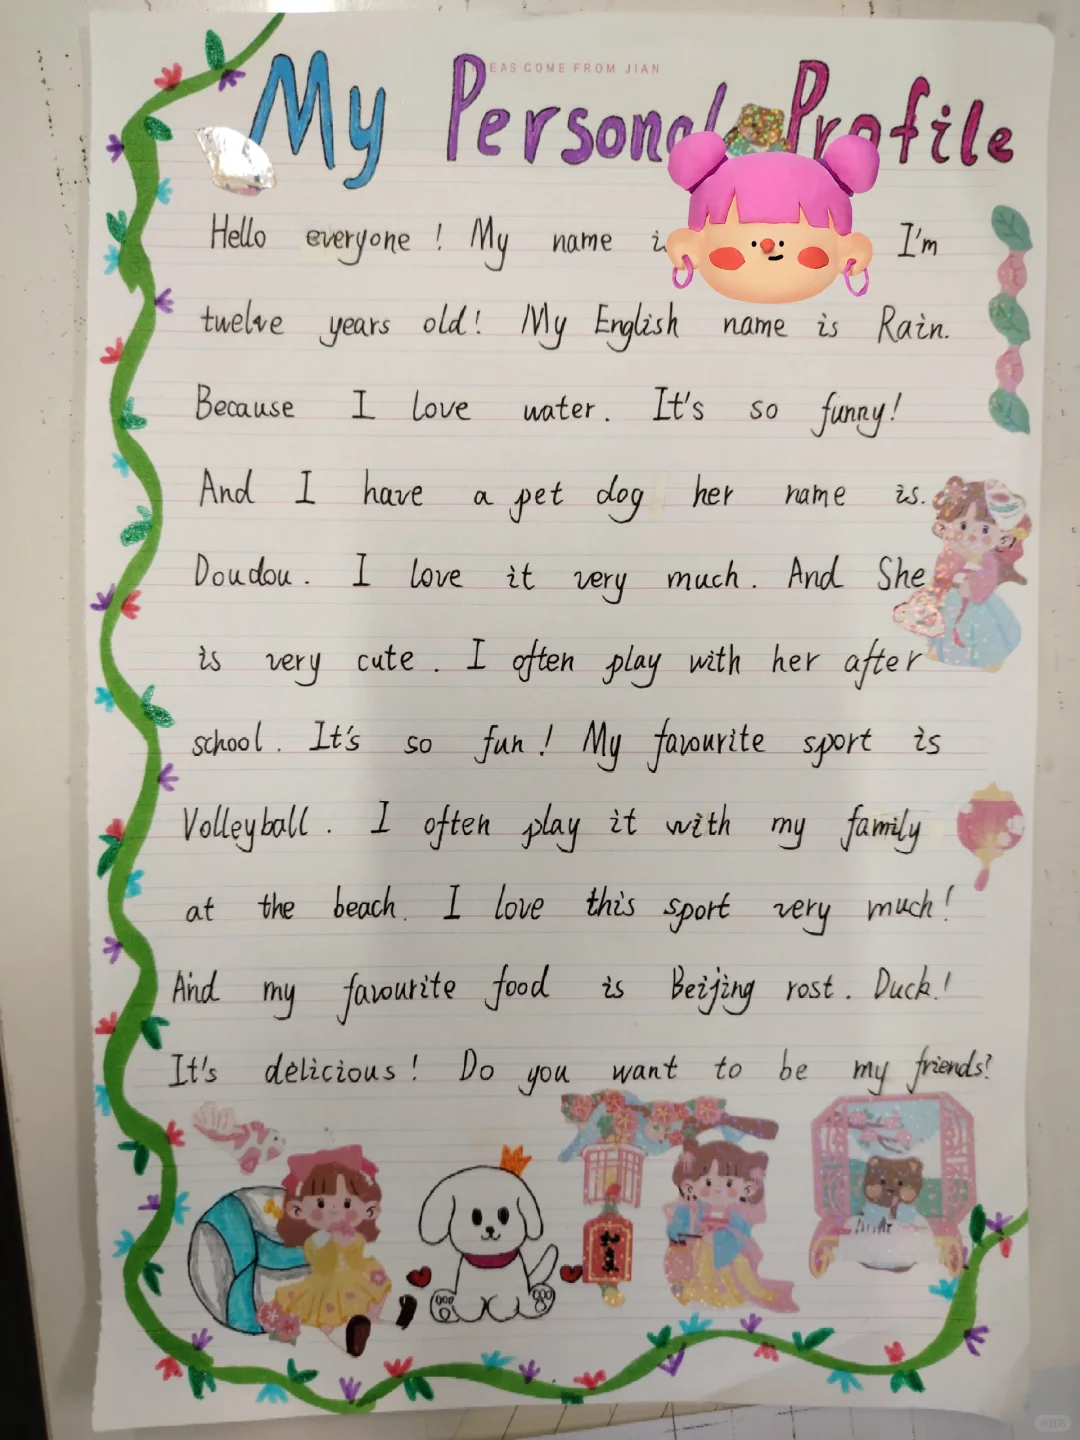 IDEAS COME FROM JIAN
My Personal Profile
Hello everyone! My name is I'm
twelve years old! My English name is Rain.
Because I love water. It's so funny!
And I have a pet dog her name is.
Doudou. I love it very much. And She
is very cute. I often play with her after
school. It's so fun! My favourite sport is
Volleyball. I often play it with my family
at the beach. I love this sport very much!
And my favourite food is Beijing rost. Duck!
It's delicious! Do you want to be my friends?
小红书